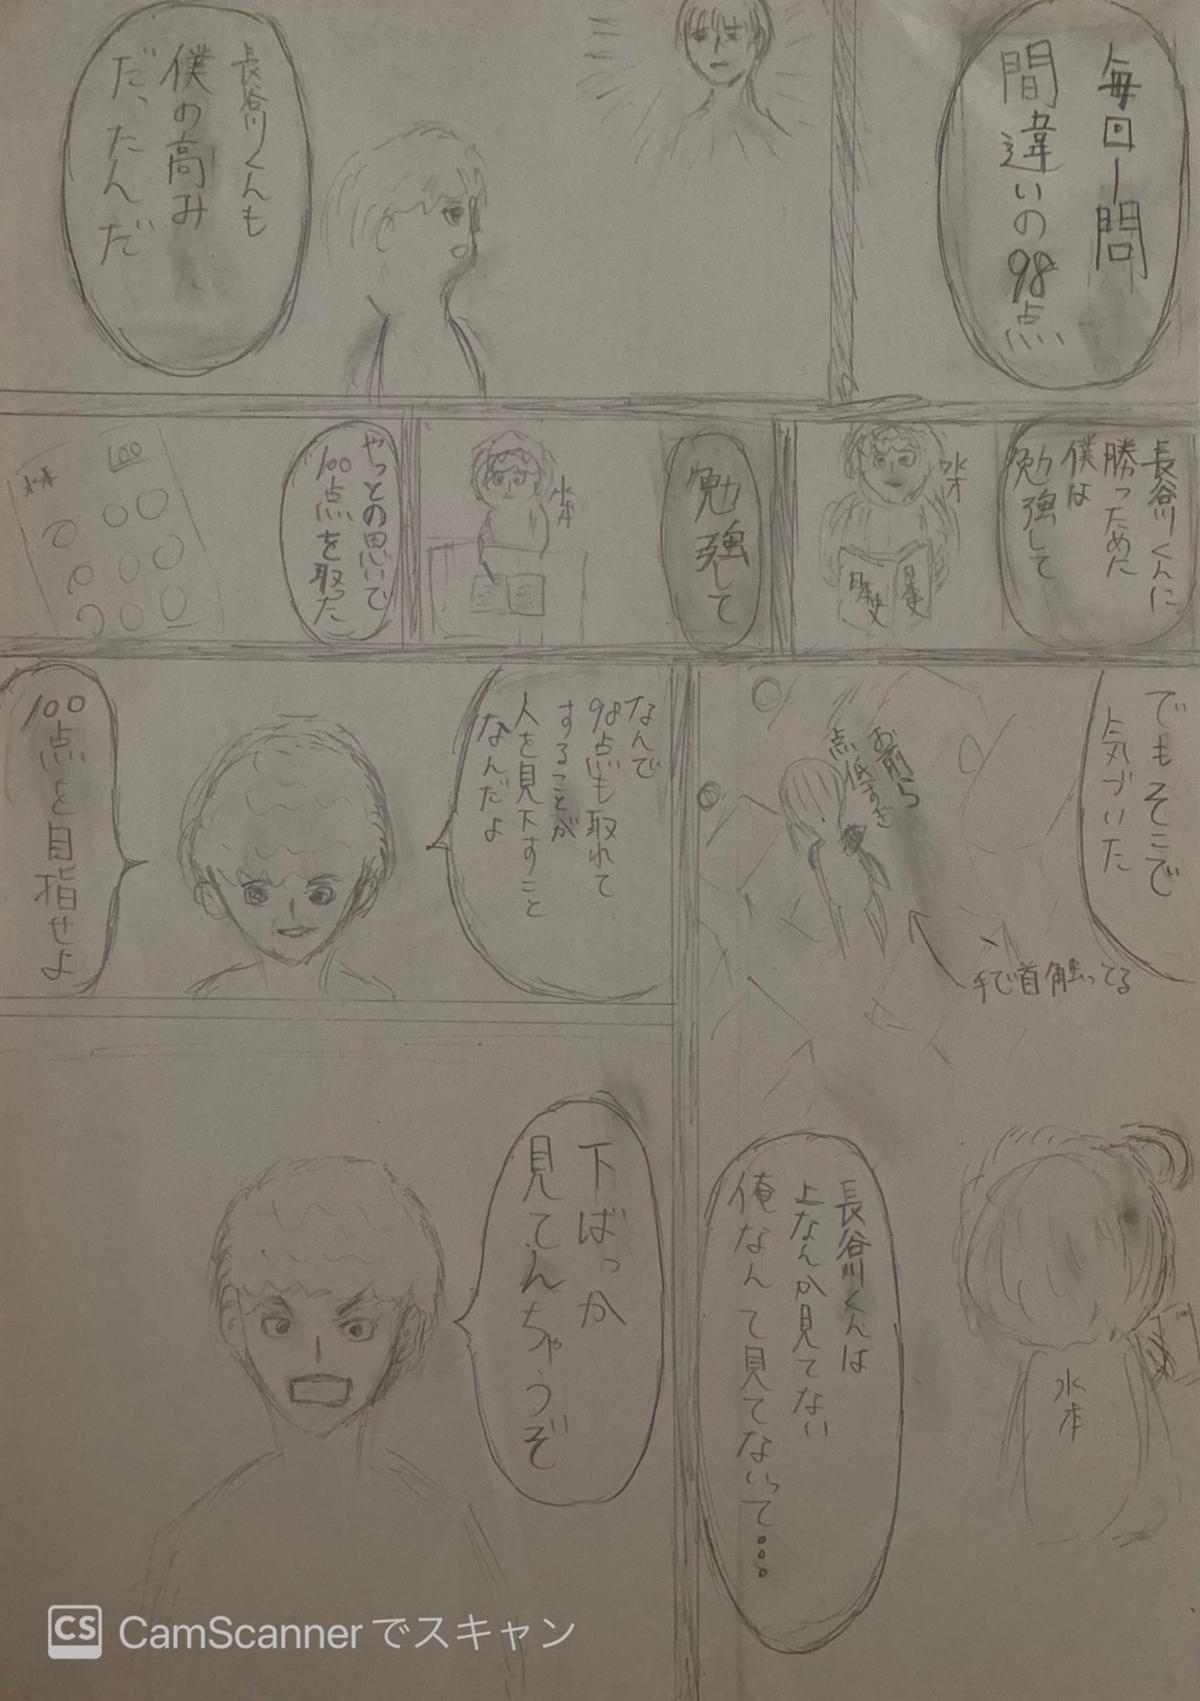 毎回一問
間違いの98点
長谷川くんも
僕の高み
だったんだ
長谷川くんに
勝つために
僕は
勉強して
水本
日本史
勉強して
水本
やっとの思いで
100点を取った
100
水本
でもそこで
気づいた
お前ら
点低すぎ
手で首触ってる
長谷川くんは
上なんか見てない
俺なんて見てないって...
水本
なんで
98点も取れて
することが
人を見下すこと
なんだよ
100点を目指せよ
下ばっか
見てんちゃうぞ
CS CamScannerでスキャン